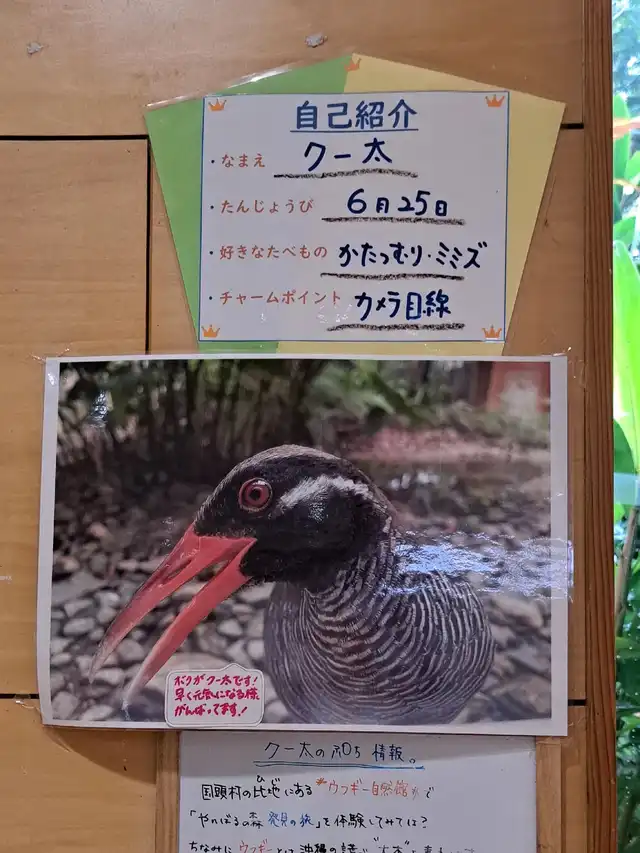 自己紹介
・なまえ クー太
・たんじょうび 6月25日
・好きなたべもの かたつむり・ミミズ
・チャームポイント カメラ目線
ボクがクー太です!
早く元気になる様
がんばってます!
クー太のプロち情報。
国頭村の比地にある"ウフギー自然館"で
ひじ
「やんばるの森 発見の旅」を体験してみては?
ちなみに ウフギーとは沖縄の